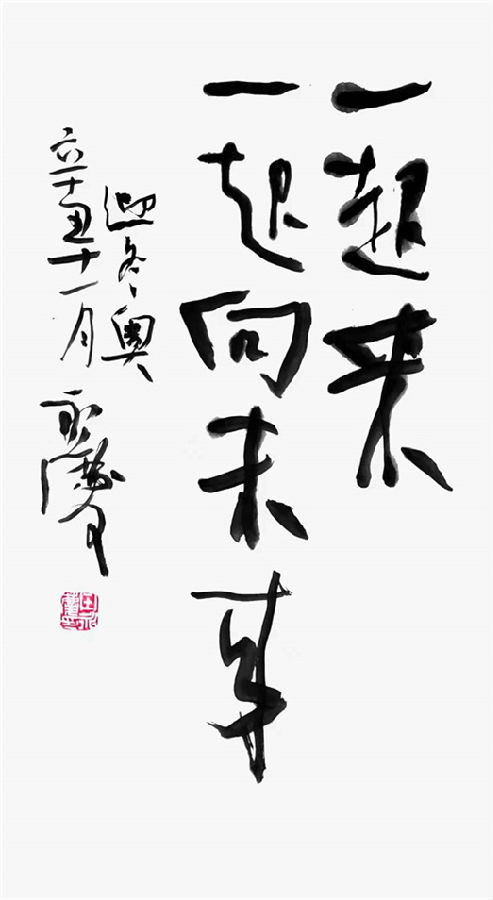 一起来
一起向未来
迎冬奥
辛丑十一月